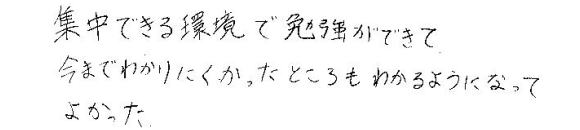 集中できる環境で勉強ができて
今までわかりにくかったところもわかるようになって
よかった.